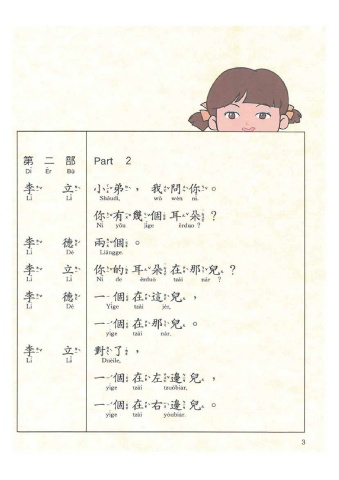 第 二 部 Part 2
Dì Èr Bù
李 立 小弟，我問你。
Lǐ Lì Shǎudì, wǒ wèn nǐ.
你有幾個耳朵？
Nǐ yǒu jǐge ěrduo?
李 德 兩個。
Lǐ Dé Liǎngge.
李 立 你的耳朵在那兒？
Lǐ Lì Nǐ de ěrduo tzài nǎr ?
李 德 一個在這兒，
Lǐ Dé Yíge tzài jèr,
一個在那兒。
yíge tzài nàr.
李 立 對了，
Lǐ Lì Duèile,
一個在左邊兒，
yíge tzài tzuǒbiar,
一個在右邊兒。
yíge tzài yòubiar.
3